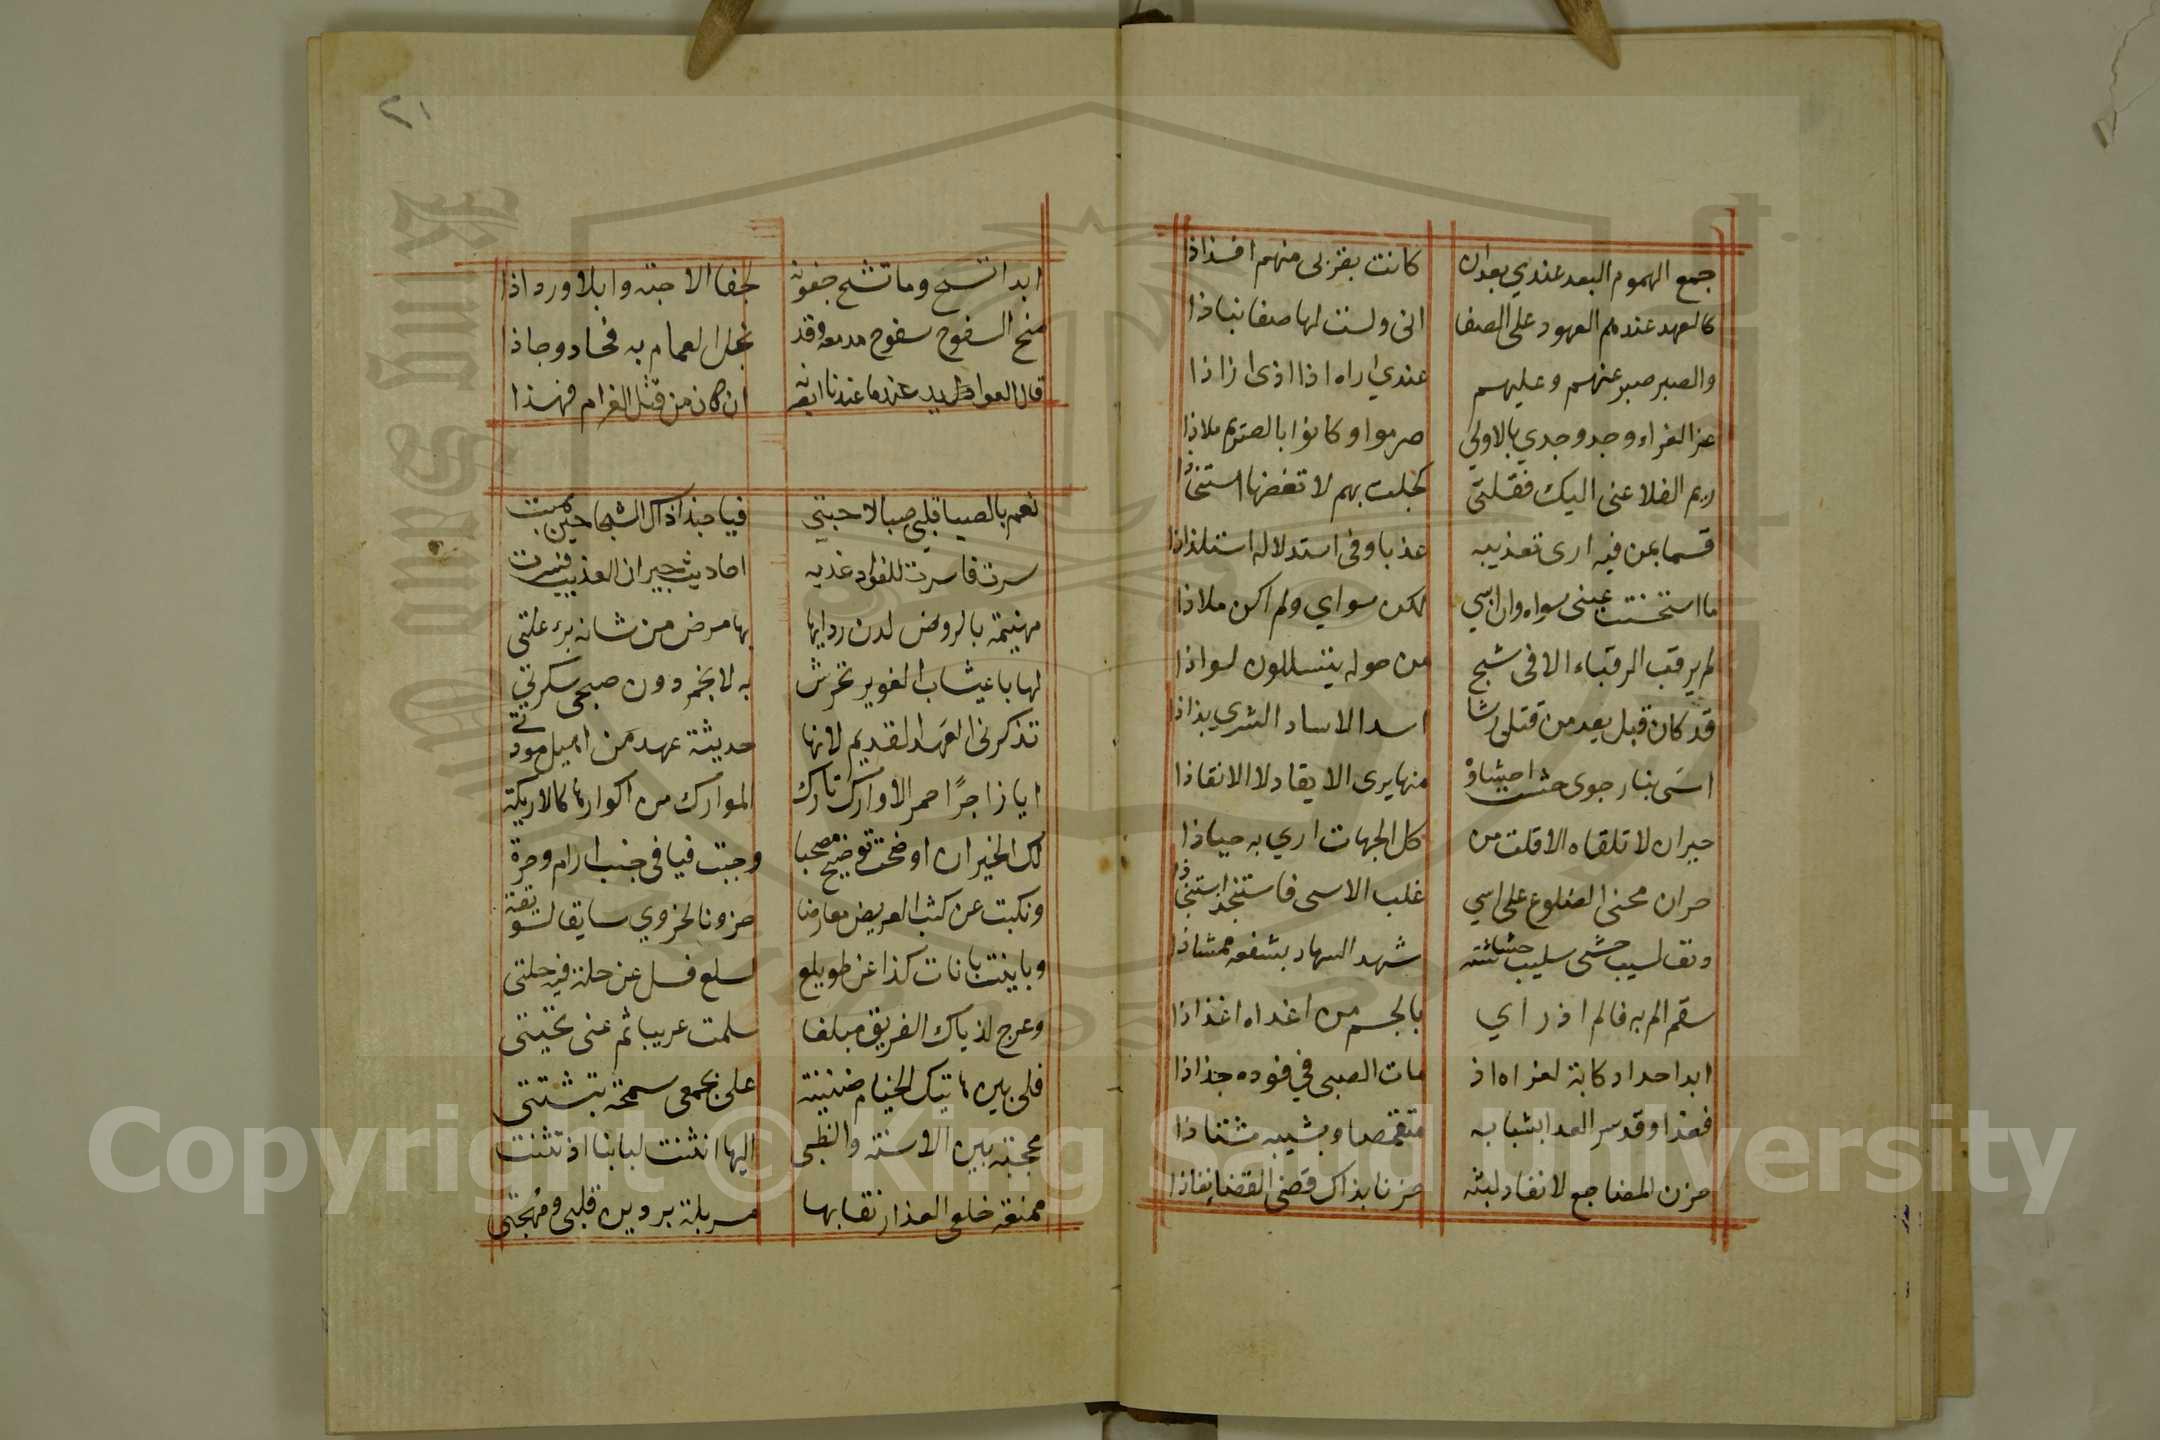 جمع الهموم البعد عندي بعد ان كانت بقربى منهم افذاذا
كالعهد عندهم العهود على الصفا انى ولست لها صفا نباذا
والصبر صبر عنهم وعليهم عندي اراه اذا اذى ازاذا
عز العزاء وجد وجدي بالاولى صرموا وكانوا بالصريم ملاذا
ريم الفلا عنى اليك فمقلتى كحلت بهم لا تغضها استنخاذا
قسما بمن فيه ارى تعذيبه عذبا وفى استذلاله استلذاذا
ما استحسنت عينى سواه وان سبي لكن سواي ولم اكن ملاذا
لم يرقب الرقباء الا فى شج من حوله يتسللون لواذا
قد كان قبل يعد من قتلى رشا اسدا لاساد الشرى بذاذا
امسى بنار جوى حشت احشاؤه منها يرى الايقاد لا الانقاذا
حيران لا تلقاه الا قلت من كل الجهات اري به جباذا
حران محنى الضلوع على اسي غلب الاسى فاستنجذ استنجاذا
دنف لسيب حشى سليب حشاشته شهد السهاد بشفعه ممشاذا
سقم الم به فالم اذ راي بالجسم من اغداه اغذاذا
ابدا حداد كابة لعزاه اذ مات الصبى في فوده جذاذا
فغدا وقد سر العدا بشبابه متقمصا وبشيبه مشتاذا
حزن المضاجع لا نفاد لبثه حزنا بذاك قضى القضا نفاذا
٢١
ابدا تسح وما تشح جفونه لجفا الاحبته وابلا ورذاذا
منح السفوح سفوح مدمعه وقد بخل الغمام به فجاد وجاذا
قال العوايد عندما عندنا ابصرنه ان كان من قتل الغرام فهذا
نعم بالصبا قلبي صبا لاحبتي فيا حبذا ذاك الشذا حين هبت
سرت فاسرت للفواد غديه احاديث جيران العذيب فسرت
مهينمة بالروض لدن ردايها بها مرض من شانه برء علتى
لها باعيشاب الغوير تحرش به لا بخمر دون صحبى سكرتي
تذكرنى العهد القديم لانها حديثة عهد من اهيل مودتي
ايا زاجرًا حمر الاوارك تارك الموارك من اكوارها كالاريكة
لك الخيران اوضحت توضيح مصحبا وجبت فيا فى خبت ارام وجرة
ونكبت عن كثب العريض معارضا حزونا لحزوي سايقا لسويقة
وباينت بانات كذا عن طويلع لسلع فسل عن حلة فيه حلتى
وعرج لذياك الفريق مبلغا سلمت عريبا ثم عنى تحيتى
فلى بين هاتيك الخيام ضنينة على بجمعى سمحة بتشتتى
محجبة بين الاسنة والظبى اليها انثنت لبابنا اذ تثنت
ممنعة خلع العذار نقابها مسربلة بردين قلبى ومهجتى